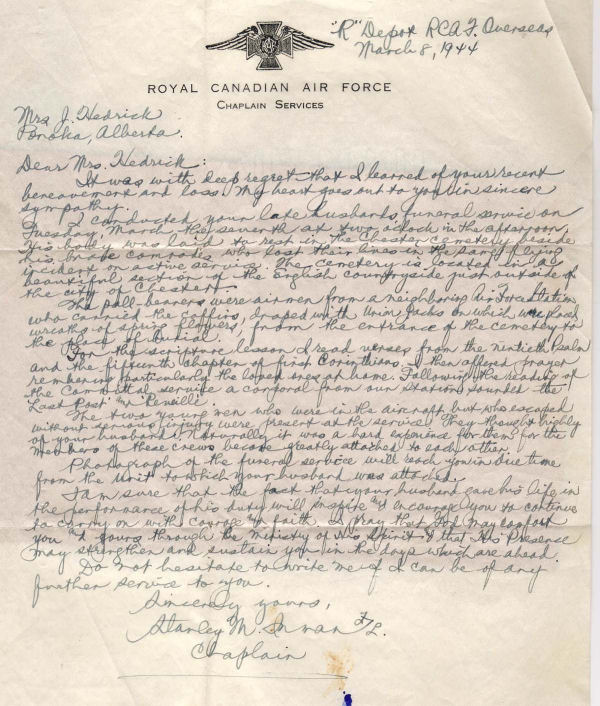 "R" Depot RCAF. Overseas
March 8, 1944
ROYAL CANADIAN AIR FORCE
CHAPLAIN SERVICES
Mrs J. Hedrick
Ponoka, Alberta.
Dear Mrs. Hedrick:
It was with deep regret that I learned of your recent
bereavement and loss. My heart goes out to you in sincere
sympathy.
I conducted your late husbands funeral service on
Tuesday, March the seventh at two o'clock in the afternoon.
His body was laid to rest in the Chester cemetery beside
his brave comrades who lost their lives in the same flying
incident on active service. This cemetery is located in a
beautiful section of the English countryside just outside of
the city of Chester.
The pall-bearers were airmen from a neighboring Air Force Station
who carried the coffins, draped with Union Jacks on which were placed
wreaths of spring flowers, from the entrance of the cemetery to
the place of burial.
For the scripture lesson I read verses from the ninetieth Psalm
and the fifteenth chapter of first Corinthians. I then offered prayer
remembering particularly the loved ones at home. Following the reading of
the Committal service a corporal from our station sounded the
"Last Post" and "Reveille".
The two young men who were in the aircraft but who escaped
without serious injury were present at the service. They thought highly
of your husband. Naturally it was a hard experience for them for the
members of these crews become greatly attached to each other.
Photograph of the funeral service will reach you in due time
from the Unit to which your husband was attached.
I am sure that the fact that your husband gave his life in
the performance of his duty will inspire & encourage you to continue
to carry on with courage & faith. I pray that God may comfort
you & yours through the ministry of His Spirit & that His Presence
may strengthen and sustain you in the days which are ahead.
Do not hesitate to write me if I can be of any
further service to you.
Sincerely yours,
Stanley M. Inman F/L.
Chaplain